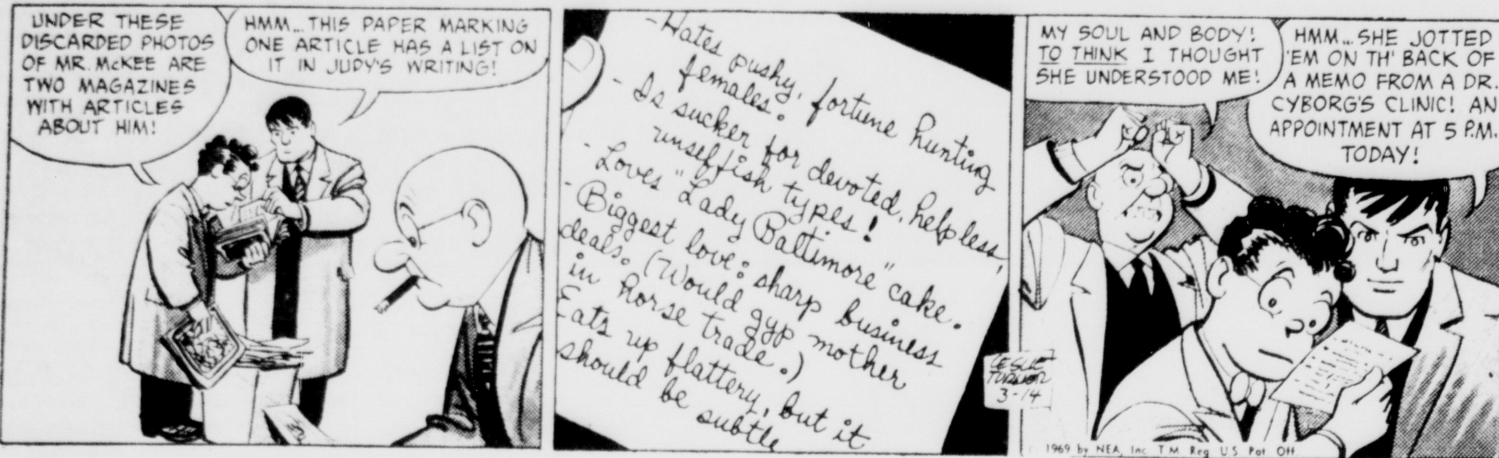 UNDER THESE
DISCARDED PHOTOS
OF MR. McKEE ARE
TWO MAGAZINES
WITH ARTICLES
ABOUT HIM!
HMM... THIS PAPER MARKING
ONE ARTICLE HAS A LIST ON
IT IN JUDY'S WRITING!
- Hates pushy, fortune hunting
females.
- Is sucker for devoted, helpless,
unselfish types!
- Loves "Lady Baltimore" cake.
- Biggest love: sharp business
deals. (Would gyp mother
in horse trade.)
Eats up flattery, but it
should be subtle
MY SOUL AND BODY!
TO THINK I THOUGHT
SHE UNDERSTOOD ME!
HMM... SHE JOTTED
'EM ON TH' BACK OF
A MEMO FROM A DR.
CYBORG'S CLINIC! AN
APPOINTMENT AT 5 P.M.
TODAY!
LESLIE
TURNER
3-14
1969 by NEA, Inc. T.M. Reg. U.S. Pat. Off